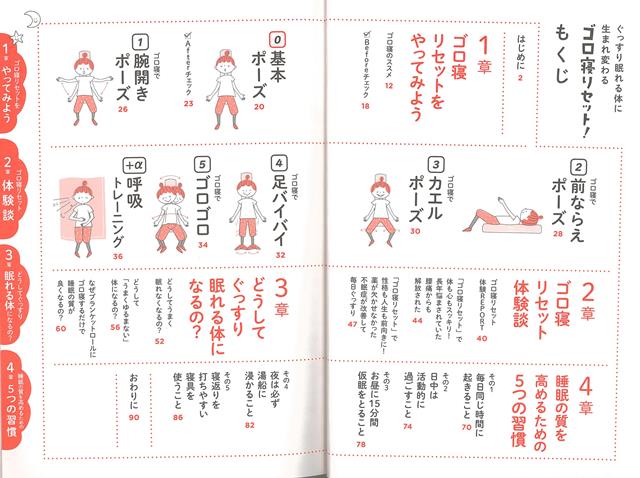 ぐっすり眠れる体に
生まれ変わる
ゴロ寝リセット!
もくじ
はじめに 2
1章
ゴロ寝
リセットを
やってみよう
ゴロ寝のススメ 12
Beforeチェック 18
0 基本
ポーズ
20
Afterチェック
23
1 ゴロ寝で
腕開き
ポーズ
26
2 ゴロ寝で
前ならえ
ポーズ
28
3 ゴロ寝で
カエル
ポーズ
30
4 ゴロ寝で
足バイバイ
32
5 ゴロ寝で
ゴロゴロ
34
+α 呼吸
トレーニング
36
2章
ゴロ寝
リセット
体験談
ゴロ寝リセット
体験REPORT 40
体も心もスッキリ!
長年悩まされていた
腰痛からも
解放された 44
「ゴロ寝リセット」で
性格も人生も前向きに!
薬が欠かせなかった
不眠症が改善して
毎日ぐっすり 47
3章
どうして
ぐっすり
眠れる体に
なるの?
どうしてうまく
眠れなくなるの? 52
どうして
「うまくゆるまない」
体になるの? 56
なぜブランケットロールに
ゴロ寝するだけで
睡眠の質が
良くなるの? 60
4章
睡眠の質を
高めるための
5つの習慣
その1
毎日同じ時間に
起きること 70
その2
日中は
活動的に
過ごすこと 74
その3
お昼に15分間
仮眠をとること 78
その4
夜は必ず
湯船に
浸かること 82
その5
寝返りを
打ちやすい
寝具を
使うこと 86
おわりに 90
1章 ゴロ寝リセットを
やってみよう
2章 ゴロ寝リセット
体験談
3章 どうしてぐっすり
眠れる体になるの?
4章 睡眠の質を高めるための
5つの習慣